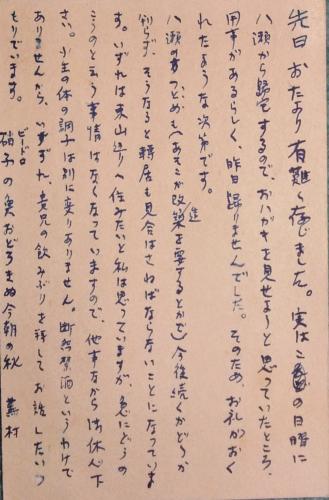 先日おたより有難く存じました。実はこの日曜に
八瀬から帰宅するので、おハガキを見せようと思っていたところ、
用事があるらしく、昨日帰りませんでした。そのため、お礼がおく
れたような次第です。
八瀬のすつどめも(あそこが改築を要するとかで)今後続くかどうか
判らず そうなると轉居も見合はさねばならないことになっていま
す。いずれは東山辺りへ住みたいと私は思っていますが、急にどうの
こうのと云う事情はなくなっていますので、他事ながら御休心下
さい。小生の体の調子は別に変りありません。断然禁酒というわけで
ありませんから、いずれ、貴兄の飲みぶりを拝してお話したいつ
もりでいます。
ビードロ
硝子の魚おどろきぬ今朝の秋 蕪村